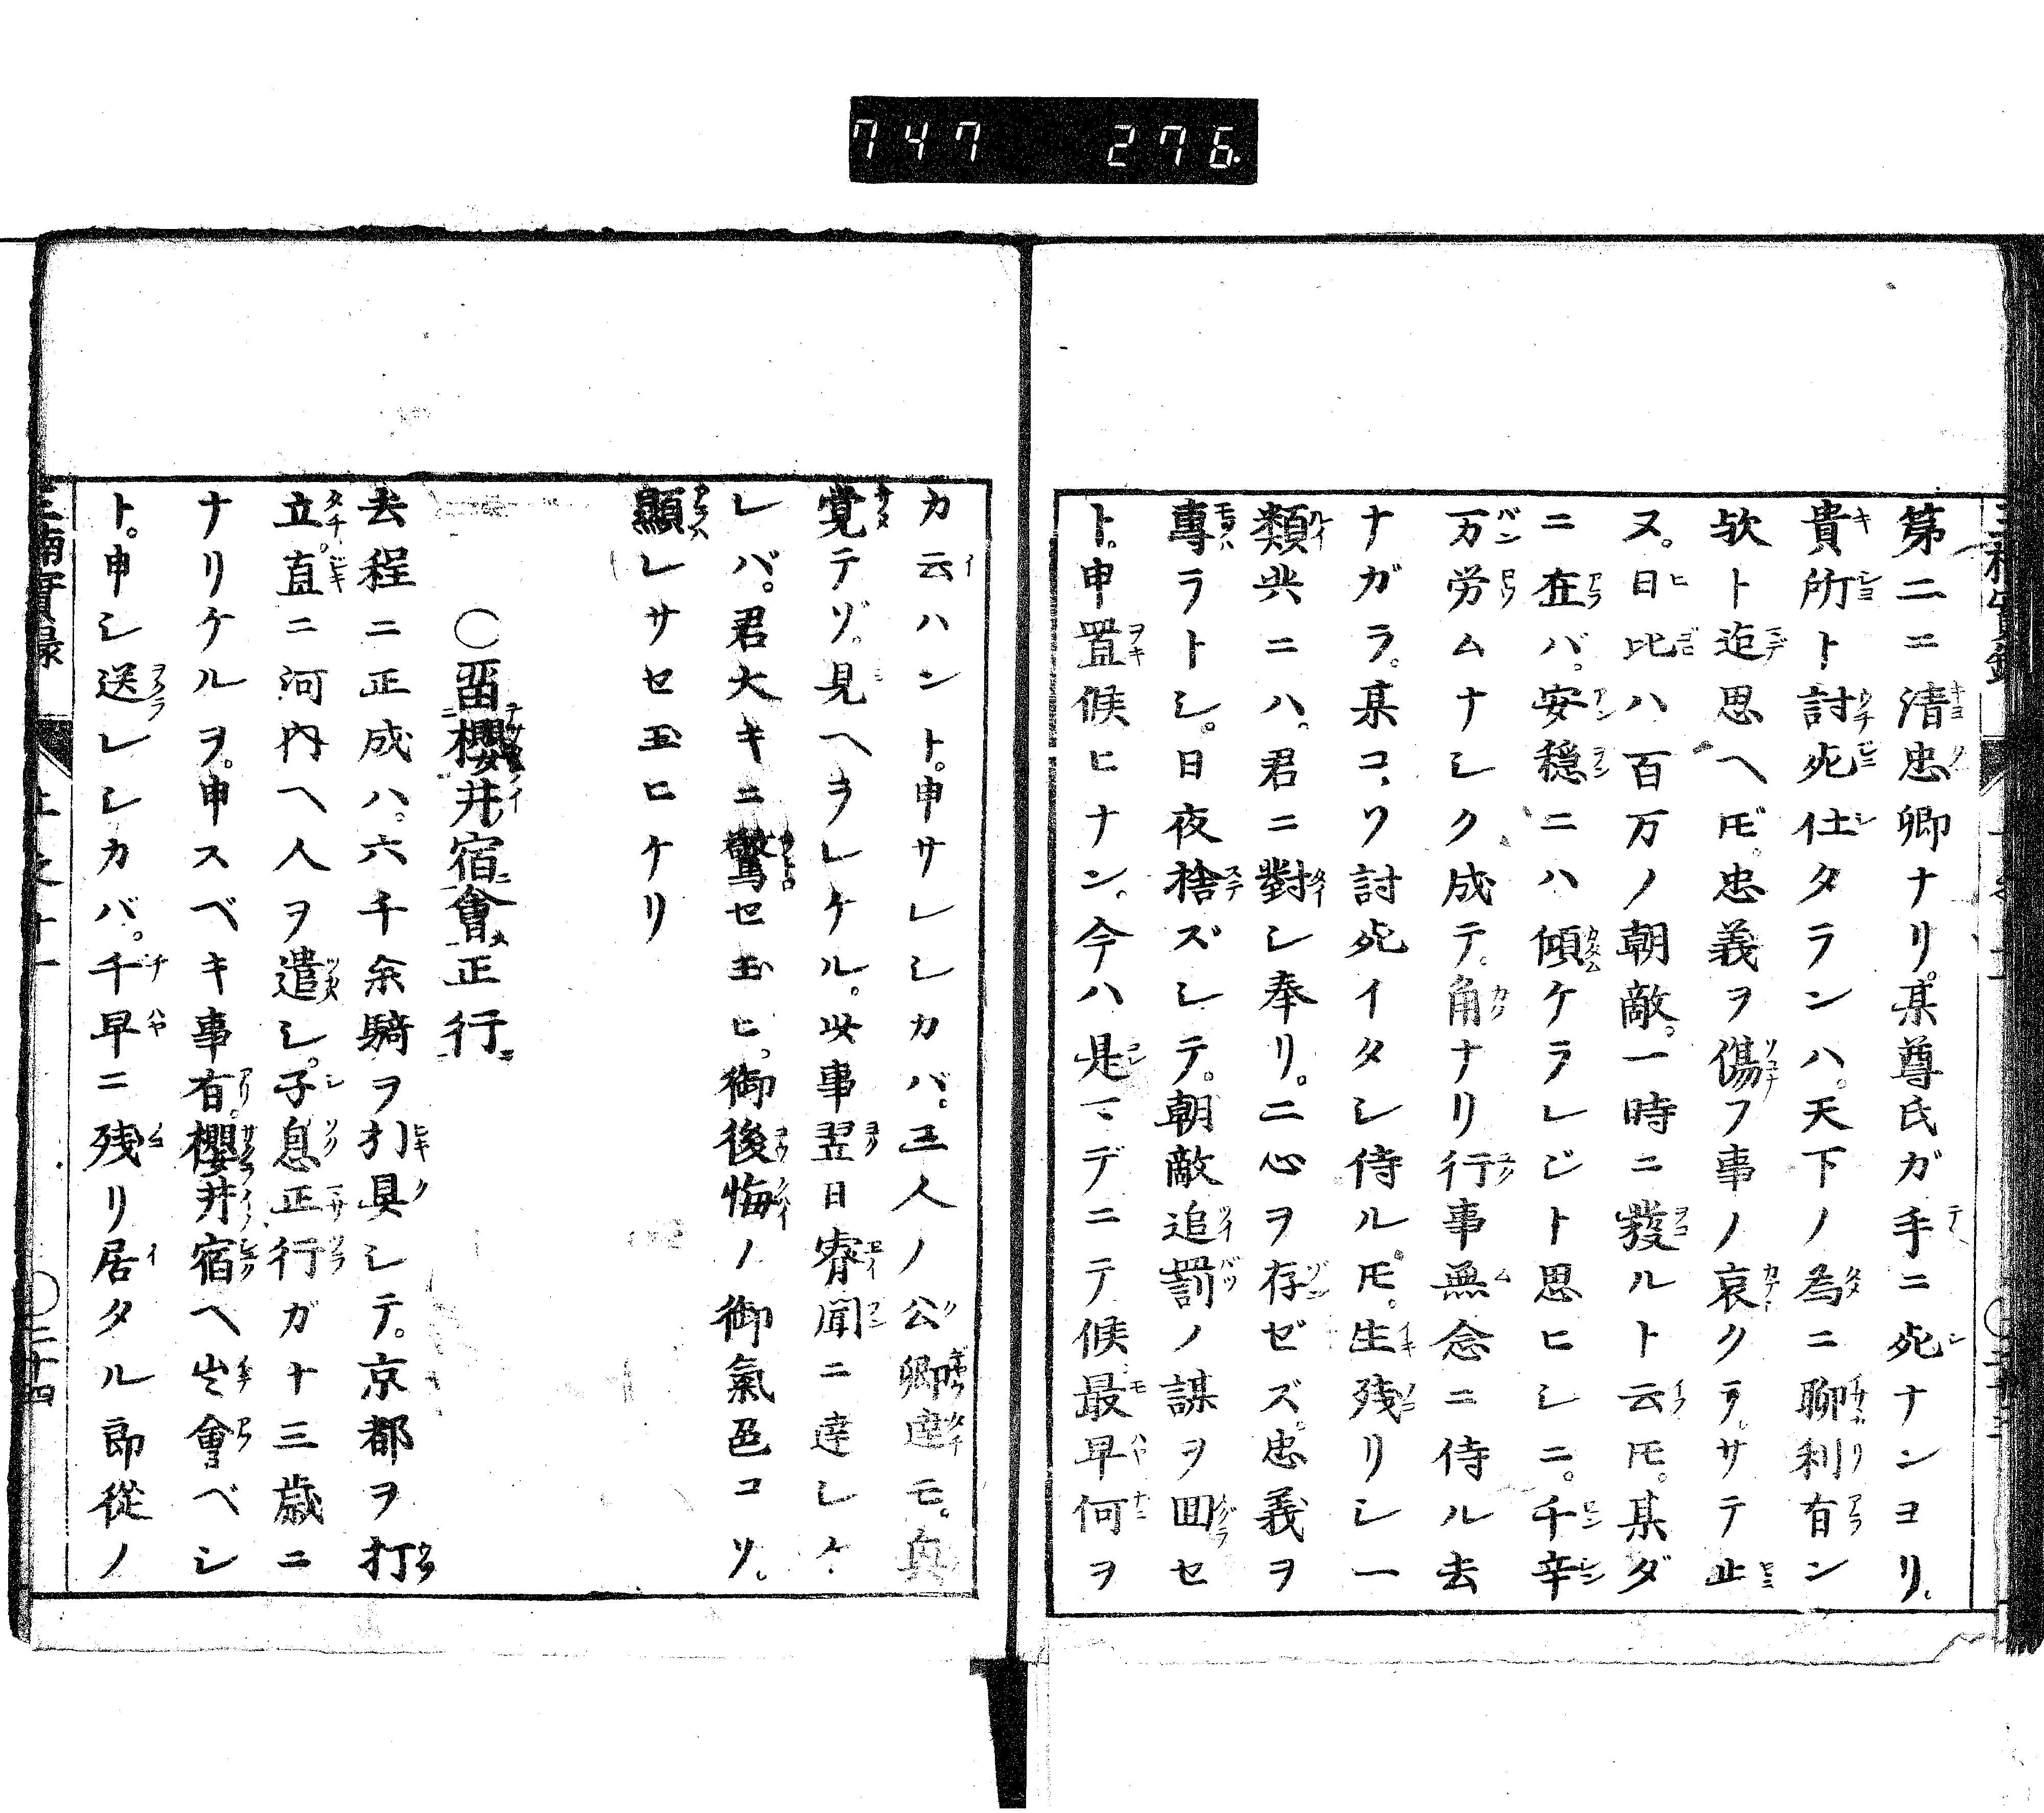 747 276.
第二ニ清忠卿ナリ。某尊氏ガ手ニ死ナンヨリ。
貴所ト討死仕タランハ。天下ノ為ニ聊利有ン
欤ト迠思ヘ𪜈。忠義ヲ傷フ事ノ哀クテ。サテ止
ヌ。日比ハ百万ノ朝敵。一時ニ發ルト云𪜈。某ダ
ニ在バ。安穏ニハ傾ケラレジト思ヒシニ。千辛
万労ムナシク成テ。角ナリ行事無念ニ侍ル去
ナガラ。某コソ討死イタシ侍ル𪜈。生残リシ一
類共ニハ。君ニ對シ奉リ。二心ヲ存ゼズ。忠義ヲ
專ラトシ。日夜捨ズシテ。朝敵追罰ノ謀ヲ囬セ
ト。申置候ヒナン。今ハ是マデニテ候最早何ヲ
カ云ハント。申サレシカバ。三人ノ公卿達モ。興
覚テゾ。見ヘラレケル。此事翌日睿聞ニ達シケ
レバ。君大キニ驚セ玉ヒ。御後悔ノ御氣色コソ。
顯レサセ玉ヒケリ
○畱櫻井宿會正行
去程ニ正成ハ。六千余騎ヲ引具シテ。京都ヲ打
立。直ニ河内ヘ人ヲ遣シ。子息正行ガ十三歳ニ
ナリケルヲ。申スベキ事有。櫻井宿ヘ来會ベシ
ト。申シ送レシカバ。千早ニ残リ居タル郎從ノ
上之十一 ○二十四